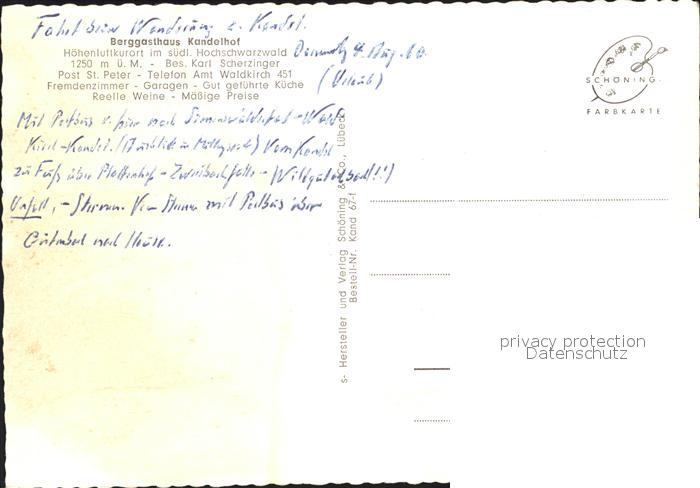 Fahrt bzw Wanderung z. Kandel.
Berggasthaus Kandelhof
Höhenluftkurort im südl. Hochschwarzwald
Donnerstg 4. Aug. 60.
1250 m ü. M. - Bes. Karl Scherzinger
Post St. Peter - Telefon Amt Waldkirch 451
(Urlaub)
Fremdenzimmer - Garagen - Gut geführte Küche
Reelle Weine - Mäßige Preise
Mit Postbus v. hier nach Simonswäldertal - Wald-
Kirch - Kandel. Vom Kandel
zu Fuß über Plattenhof - Zweribachfälle -
Unfall, - Sturm. Vom mit Postbus über
Gütenbach nach Hause.
SCHÖNING
FARBKARTE
s- Hersteller und Verlag Schöning & Co., Lübeck
Bestell-Nr. Kand 67-f
privacy protection
Datenschutz